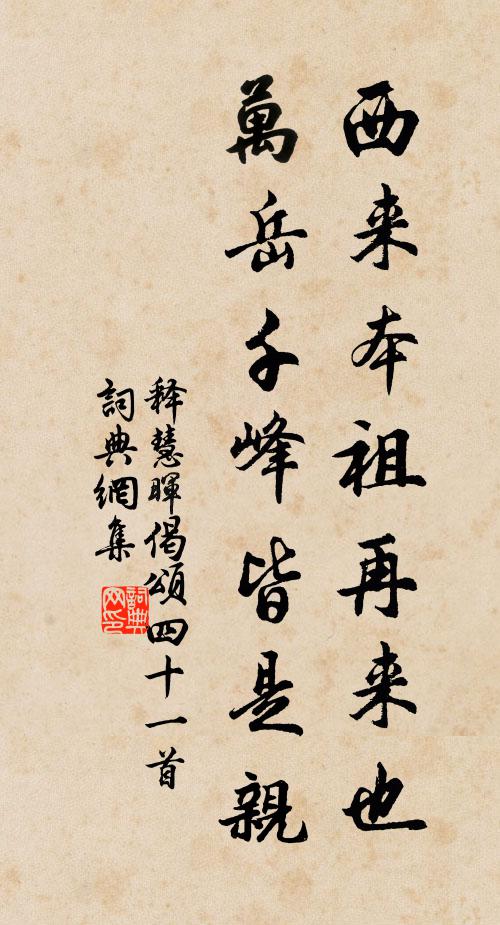 西来本祖再来也
萬岳千峰皆是親
释慧暉偈頌四十一首
詞典網集
詞典网印